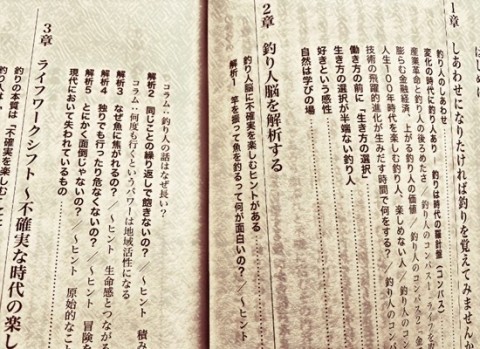 はじめに
1章 しあわせになりたければ釣りを覚えてみませんか
釣り人のしあわせ
変化の時代に釣り人あり!― 釣りは時代の羅針盤(コンパス)
産業革命と釣り人の後ろめたさ/釣り人のコンパス1 ライフを
膨らむ金融経済、上がる釣り人の価値/釣り人のコンパス2
人生100年時代を楽しむ釣り人、楽しめない人/釣り人のコン
技術の飛躍的進化が生みだす時間で何をする?/釣り人のコンパ
働き方の前に「生き方の選択」
生き方の選択が半端ない釣り人
好きという感性
自然は学びの場
2章 釣り人脳を解析する
釣り人脳に不確実を楽しむヒントがある
解析1 竿を振って魚を釣るって何が面白いの?/~ヒント
コラム:釣り人の話はなぜ長い?
解析2 同じことの繰り返しで飽きないの?/~ヒント 積み
コラム:何度も行くというパワーは地域活性になる
解析3 なぜ魚に焦がれるの?/~ヒント 生命感とつながる
解析4 独りでも行ったり危なくないの?/~ヒント 冒険を
解析5 とにかく面倒じゃないの?/~ヒント 原始的なこ
現代において失われているもの
3章 ライフワークシフト~不確実な時代の楽し
釣りの本質は「不確実を楽しむこと
釣り人は